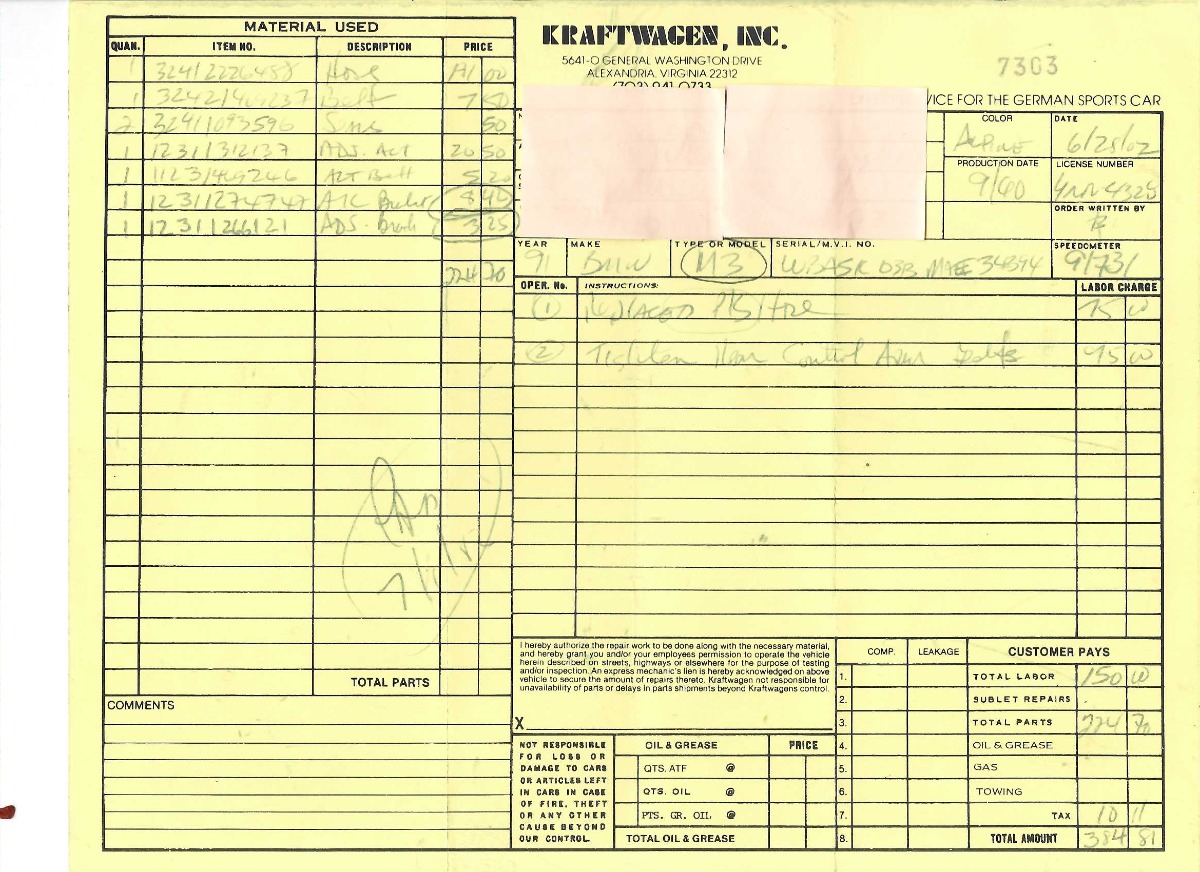 MATERIAL USED
QUAN. ITEM NO. DESCRIPTION PRICE
1 32412226488 Hose 00
1 Belt 7 50
2 32411093596 50
1 12311312137 ADJ. 20 50
1 ALT Belt 5 20
1 12311274747 8 40
1 12311266121 ADJ. 3 25
224 70
TOTAL PARTS
COMMENTS
KRAFTWAGEN, INC.
5641-O GENERAL WASHINGTON DRIVE
ALEXANDRIA, VIRGINIA 22312
(703) 941-0733
7303
VICE FOR THE GERMAN SPORTS CAR
COLOR DATE
Alpine 6/28/02
PRODUCTION DATE LICENSE NUMBER
9/90
ORDER WRITTEN BY
YEAR MAKE TYPE OR MODEL SERIAL/M.V.I. NO. SPEEDOMETER
91 BMW M3 91731
OPER. No. INSTRUCTIONS: LABOR CHARGE
1 Replaced P/S Hose 75 00
2 Tighten Rear Control Arm 75 00
I hereby authorize the repair work to be done along with the necessary material,
and hereby grant you and/or your employees permission to operate the vehicle
herein described on streets, highways or elsewhere for the purpose of testing
and/or inspection. An express mechanic's lien is hereby acknowledged on above
vehicle to secure the amount of repairs thereto. Kraftwagen not responsible for
unavailability of parts or delays in parts shipments beyond Kraftwagens control.
X
NOT RESPONSIBLE
FOR LOSS OR
DAMAGE TO CARS
OR ARTICLES LEFT
IN CARS IN CASE
OF FIRE, THEFT
OR ANY OTHER
CAUSE BEYOND
OUR CONTROL.
OIL & GREASE PRICE
QTS. ATF @
QTS. OIL @
PTS. GR. OIL @
TOTAL OIL & GREASE
COMP. LEAKAGE CUSTOMER PAYS
1. TOTAL LABOR 150 00
2. SUBLET REPAIRS
3. TOTAL PARTS 224 70
4. OIL & GREASE
5. GAS
6. TOWING
7. TAX 10 11
8. TOTAL AMOUNT 384 81